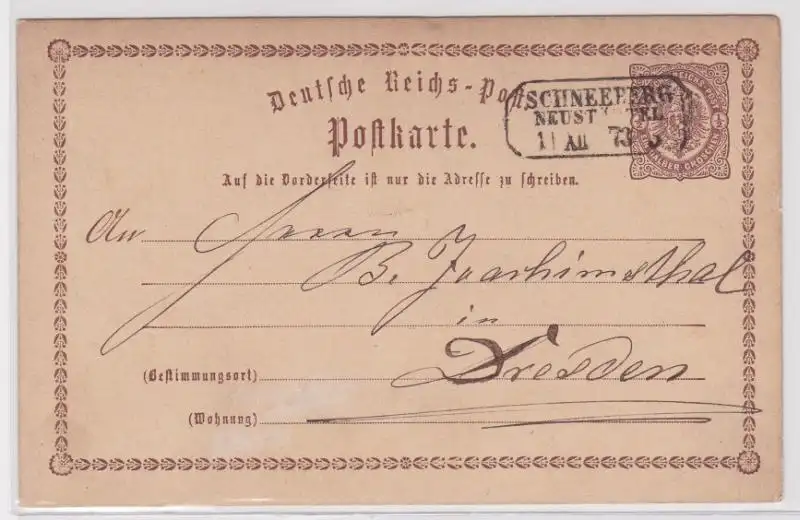 Deutsche Reichs-Post
SCHNEEBERG
NEUSTÆDTEL
11 XII 73 5
Postkarte.
Auf die Vorderseite ist nur die Adresse zu schreiben.
An Herrn
B. Joachimsthal
in
(Bestimmungsort) Dresden
(Wohnung)